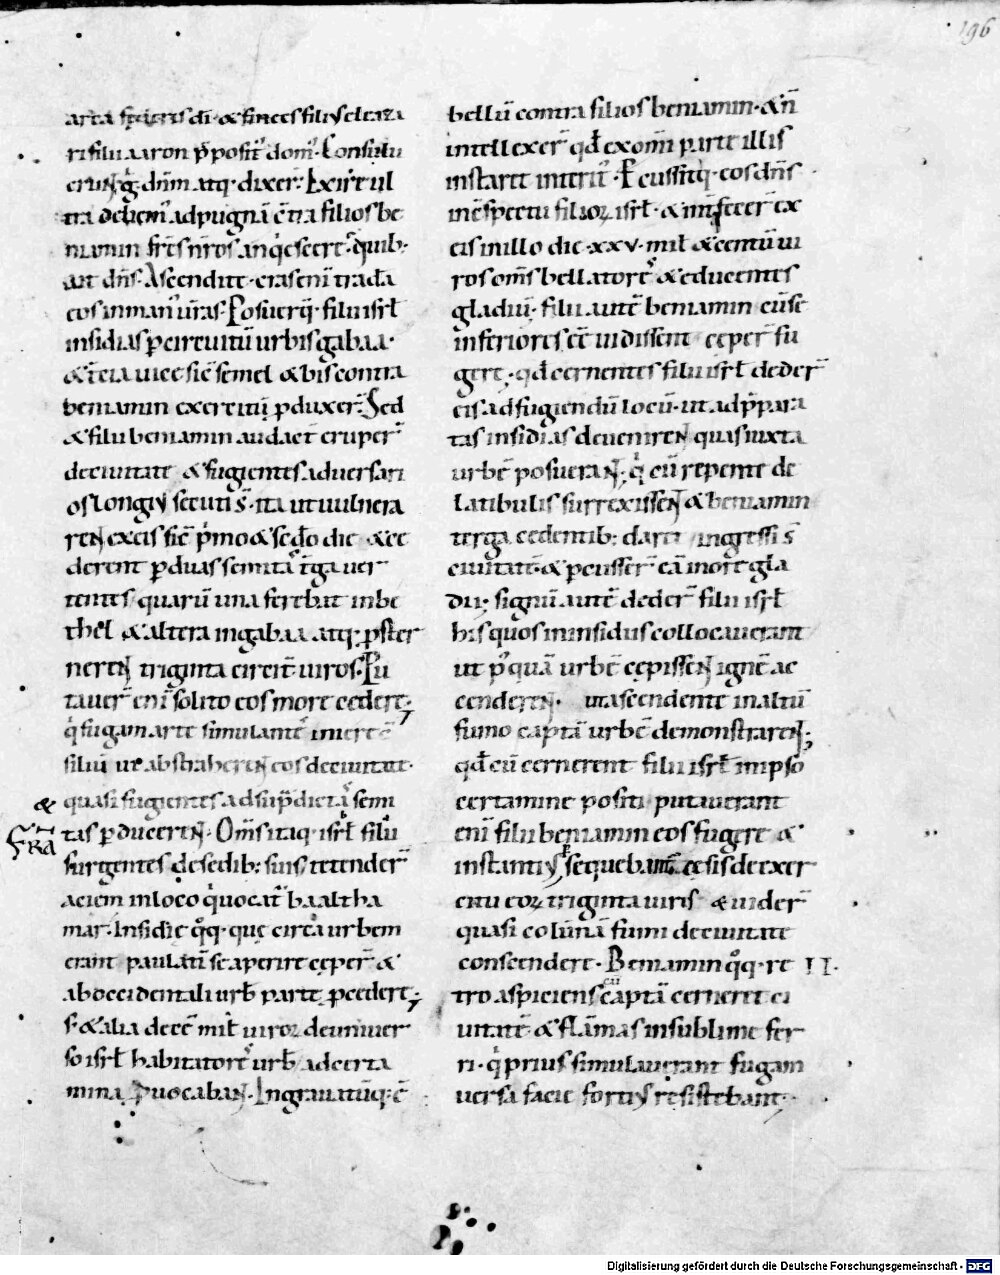 196
arca foederis di & finees filius eleaza
ri filii aaron p̄posit' dom'. Consulu
erunt g̃ dn̄m atq; dixer̄. Exire ul
tra debem' ad pugnā c̄tra filios be
niamin fr̄es nr̄os an q̇escere. quib;
ait dn̄s. Ascendite. cras enī tradā
eos in man' ūras. Posuerq; filii isrl̄
insidias p circuitū urbis gabaa.
& tcia uice sic semel & bis contra
beniamin exercitū pduxer̄. Sed
& filii beniamin audact̄ eruper̄
de ciuitate & fugientes aduersari
os longius secuti s̄. ita ut uulnera
rent ex eis sic p̍mo & scd̄o die & ce
derent p duas semitas t̄ga uer
tentes quarū una ferebat in be
thel & altera in gabaa atq; pster
nerent triginta circit̄ uiros. Pu
tauer̄ enī solito eos more cedere;
q̍ fugam arte simulantes inierc̄
siliū ut abstraherent eos de ciuitate.
& quasi fugientes ad sup̄dictas semi
tas pducerent. Om̄s itaq; isrl̄ filii
surgentes de sedib; suis tetender̄
aciem in loco q̍ uocat' baaltha
mar. Insidie q̊q; que circa urbem
erant paulatī se aperire ceper̄ &
ab occidentali urb̄ parte pcedere;
s; & alia decē mil̄ uiroꝝ de uniuer
so isrl̄ habitatores urb̄ ad certa
mina puocabant. Ingrauatūq; ē
bellū contra filios beniamin. & n̄
intellexer̄ qd̄ ex om̄i parte illis
instaret interit'. Pcussitq; eos dn̄s
in c̄spectu filioꝝ isrl̄. & int̄fecer̄ ex
eis in illo die. xxv. mil̄ & centū ui
ros om̄s bellatores & educentes
gladiū. filii autē beniamin cū se
inferiores eē uidissent ceper̄ fu
gere. qd̄ cernentes filii isrl̄ deder̄
eis ad fugiendū locū. ut ad p̄para
tas insidias deuenirent quas iuxta
urbē posuerant. q̍ cū repente de
latibulis surrexissent & beniamin
terga cedentib; daret ingressi s̄
ciuitatē. & pcusser̄ eā in ore gla
dii; signū autē deder̄ filii isrl̄
his quos in insidiis collocauerant
ut p'quā urbē cepissent ignē ac
cenderent. ut ascendente in altū
fumo captā urbē demonstrarent;
qd̄ cū cernerent filii isrl̄ in ipso
certamine positi putauerant
enī filii beniamin eos fugere &
instantius sequebant' cesis de exer
citu eoꝝ triginta uiris & uider̄
quasi colūnā fumi de ciuitate
conscendere. Beniamin q̊q; re
tro aspiciens cū captā cerneret ci
uitatē & flāmas in sublime fer
ri. q̍ prius simulauerant fugam
uersa facie fortius resistebant.
Digitalisierung gefördert durch die Deutsche Forschungsgemeinschaft - DFG